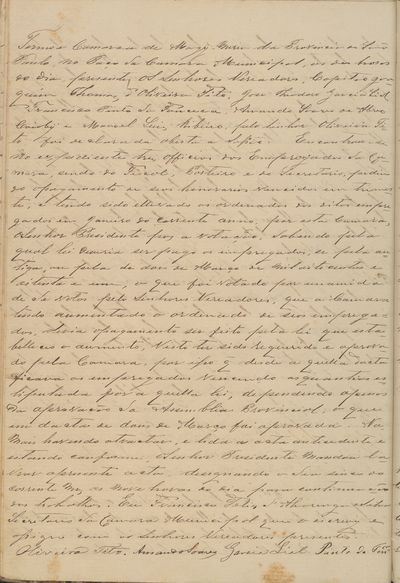 Termos Camara de Mogi Mirim da Provincia de São
Paulo, no Paço da Camara Municipal, as dez horas
do dia, presentes, os Senhores Vereadores, Capitão Joa
quim Thomas, Oliveira Tito, José Theodoro Garcia Leal
Francisco Pinto da Fonseca, Armando Soares de Abreu
Caiuby e Manoel Ribeiro, pelo Senhor Oliveira Ti
to foi declarada aberta a Sessão.
no expediente tres Officios dos Empregados da Ca
mara, sendo do Fiscal, Porteiro e do Secretario, pedin
do opagamento de seus honorarios vencidos em trimes
te, e tendo sido elevado os ordenados dos ditos empre
gados em Janeiro do corrente anno, por esta Camara,
oSenhor Presidente poz a votação, sabendo pela
qual lei deveria ser pago os empregados, se pela an
tiga, ou pela de dous de Março de mil oito centos e
oitenta e um, o que foi votado por unanimida
de de votos pelos Senhores Vereadores, que a Camara
tendo augmentado o ordenado de seus emprega
dos, devia opagamento ser feito pela lei que esta
beleceo o aumento, visto ter sido requerido e aprova
do pela Camara, por isso que desde aquella data
ficavão os empregados vencendo a quantia es
tipulada por aquella lei, dependendo apenas
da aprovação da Assemblia Provincial, o que
em data de dous de Março foi aprovada. Na
da mais havendo atractar, e lida a acta antecedente e
estando conforme, oSenhor Presidente mandou la
vrar apresente acta, designando o dia cinco do
corrente mez, as nove horas do dia para continuação
dos trabalhos. Eu Francisco
Secretario da Camara Municipal que o escrevi e
assigno com os Senhores Vereadores presentes.
Oliveira Tito. Armando Soares Garcia Leal Pinto da Fon